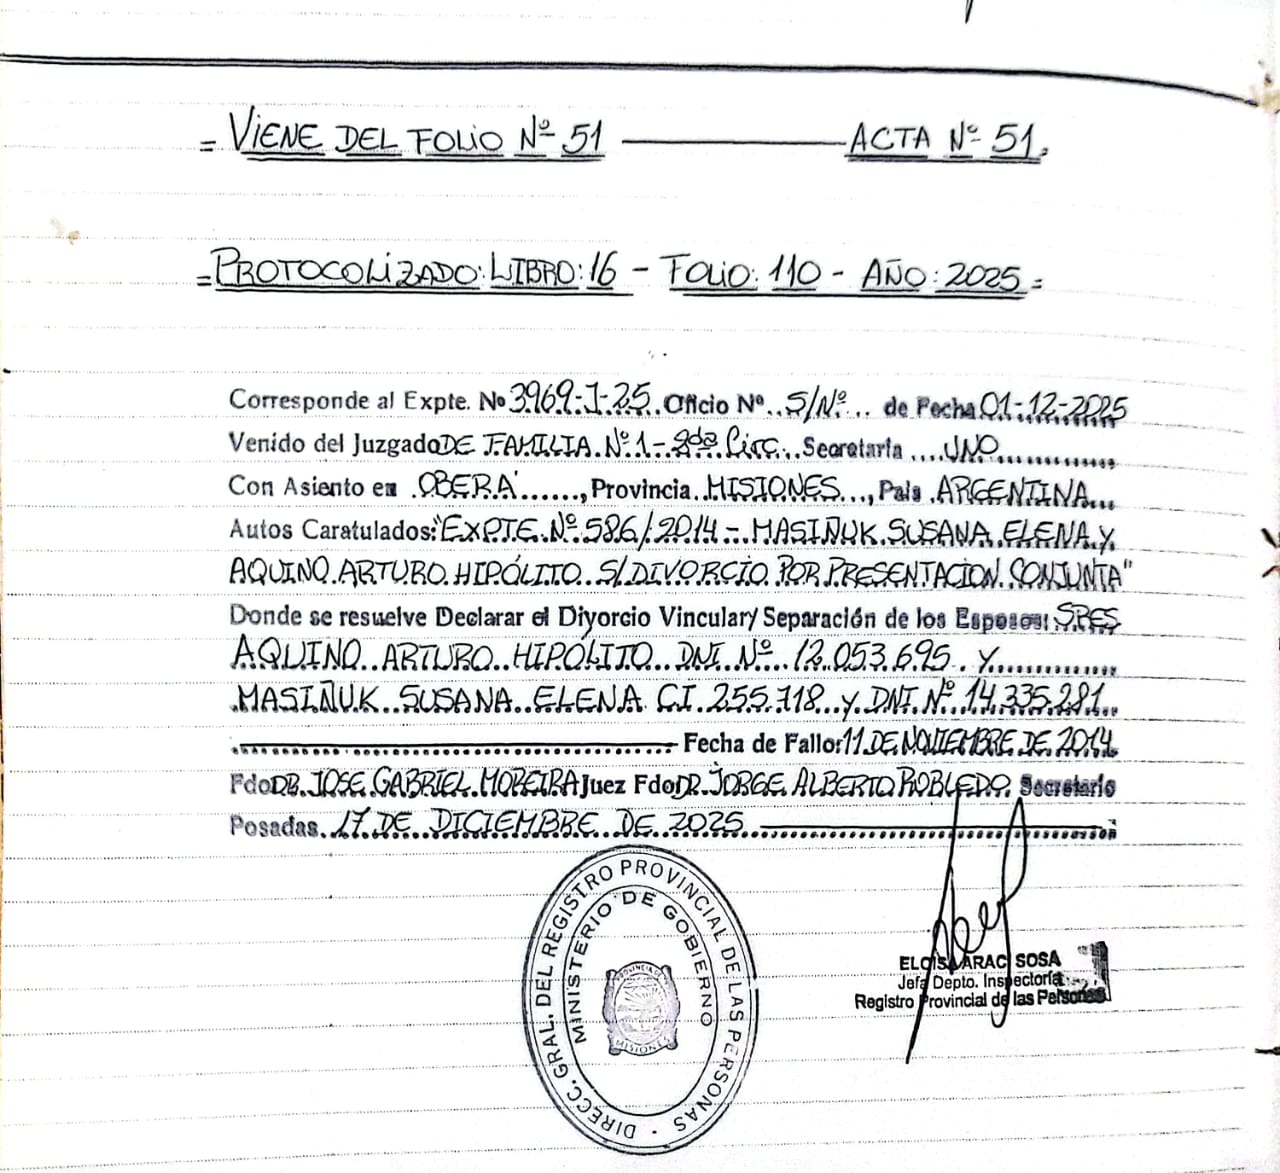 = VIENE DEL FOLIO Nº 51 ——— ACTA Nº 51.
= PROTOCOLIZADO: LIBRO: 16 - FOLIO: 110 - AÑO: 2025 =
Corresponde al Expte. Nº 3969-J-25. Oficio Nº.. S/Nº... de Fecha 01-12-2025
Venido del Juzgado DE FAMILIA. Nº 1 - 2da. Circ. . Secretaria .... UNO..............
Con Asiento en .OBERÁ......, Provincia. MISIONES..., Pais .ARGENTINA...
Autos Caratulados: "EXPTE. Nº 586/2014 - MASIÑUK. SUSANA. ELENA. Y
AQUINO. ARTURO. HIPÓLITO. S/DIVORCIO. POR. PRESENTACION. CONJUNTA"
Donde se resuelve Declarar el Divorcio Vincular y Separación de los Esposos: SRES
AQUINO.. ARTURO.. HIPÓLITO... DNI. Nº.. 12.053.695. Y..............
.MASIÑUK.. SUSANA.. ELENA CI. 255.718.. y. DNI. Nº. 14.335.281..
Fecha de Fallo: 11 DE NOVIEMBRE DE 2014
Fdo DR. JOSE. GABRIEL. MOREIRA Juez Fdo DR. JORGE. ALBERTO ROBLEDO. Secretario
Posadas. 17. DE.. DICIEMBRE.. DE.. 2025
DIRECC. GRAL. DEL REGISTRO PROVINCIAL DE LAS PERSONAS
MINISTERIO DE GOBIERNO
MISIONES
SOSA
Jefa Depto. Inspectoría
Registro Provincial de las Personas